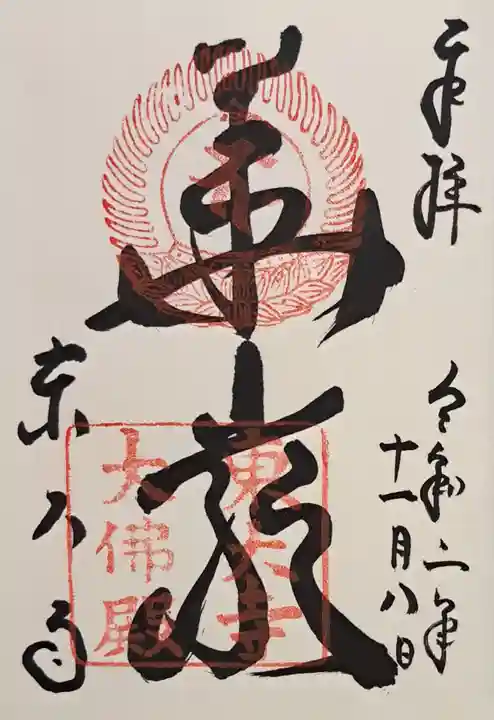 奉拝
令和二年
十一月八日
華厳
東大寺
大佛殿
東大寺